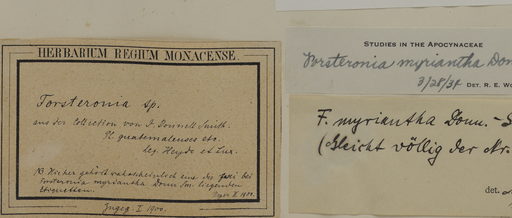 HERBARIUM REGIUM MONACENSE
Forsteronia sp.
aus der Collection von J. Donnell Smith.
Pl. guatemalenses etc.
leg. Heyde et Lux.
NB Hieher gehört wahrscheinlich eine der zwei bei
Forsteronia myriantha Donn. Sm. liegenden
Etiquetten.
1900.
Ingeg. I. 1900.
STUDIES IN THE APOCYNACEAE
Forsteronia myriantha Donn
3/28/34 DET. R. E. Wo
F. myriantha Donn. - S
(Gleicht völlig der Nr.
det.